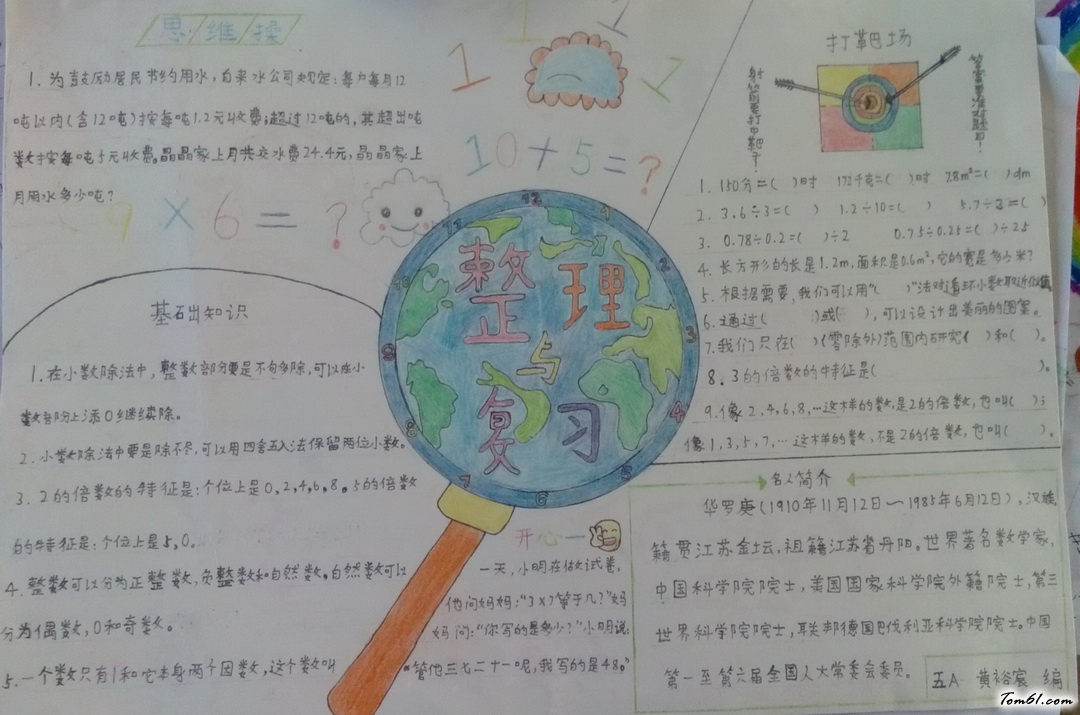 思维操
1. 为鼓励居民节约用水，自来水公司规定：每户每月12
吨以内(含12吨)按每吨1.2元收费；超过12吨的，其超出吨
数按每吨5元收费。晶晶家上月共交水费24.4元，晶晶家上
月用水多少吨？
1 1 1 1
10+5=?
9×6=?
打靶场
射箭要打中靶子
答案要准对题目！
1. 150分=( )时 172千克=( )时 28m²=( )dm
2. 3.6÷3=( ) 1.2÷10=( ) 5.7÷3=( )
3. 0.78÷0.2=( )÷2 0.75÷0.25=( )÷25
4. 长方形的长是1.2m，面积是0.6m²，它的宽是多少米？
5. 根据需要，我们可以用“( )”法对循环小数取近似值
6. 通过( )或( )，可以设计出美丽的图案。
7. 我们只在( )(零除外)范围内研究( )和( )。
8. 3的倍数的特征是( )。
9. 像2,4,6,8,…这样的数，是2的倍数，也叫( )；
像1,3,5,7,…这样的数，不是2的倍数，也叫( )。
基础知识
1. 在小数除法中，整数部分要是不句多除，可以在小
数部分上添0继续除。
2. 小数除法中要是除不尽，可以用四舍五入法保留两位小数。
3. 2的倍数的特征是：个位上是0,2,4,6,8。5的倍数
的特征是：个位上是5,0。
4. 整数可以分为正整数，负整数和自然数。自然数可以
分为偶数，0和奇数。
5. 一个数只有1和它本身两个因数，这个数叫
12 1 2 3 4 5 6 7 8 9 10 11
整理
与
复习
开心一
一天，小明在做试卷，
他问妈妈：“3×7等于几？”妈
妈问：“你写的是多少？”小明说：
“管他三七二十一呢，我写的是48。”
名人简介
华罗庚(1910年11月12日—1985年6月12日)，汉族，
籍贯江苏金坛，祖籍江苏省丹阳。世界著名数学家，
中国科学院院士，美国国家科学院外籍院士，第三
世界科学院院士，联邦德国巴伐利亚科学院院士。中国
第一至第六届全国人大常委会委员。
五A 黄裕宸 编
Tom61.com